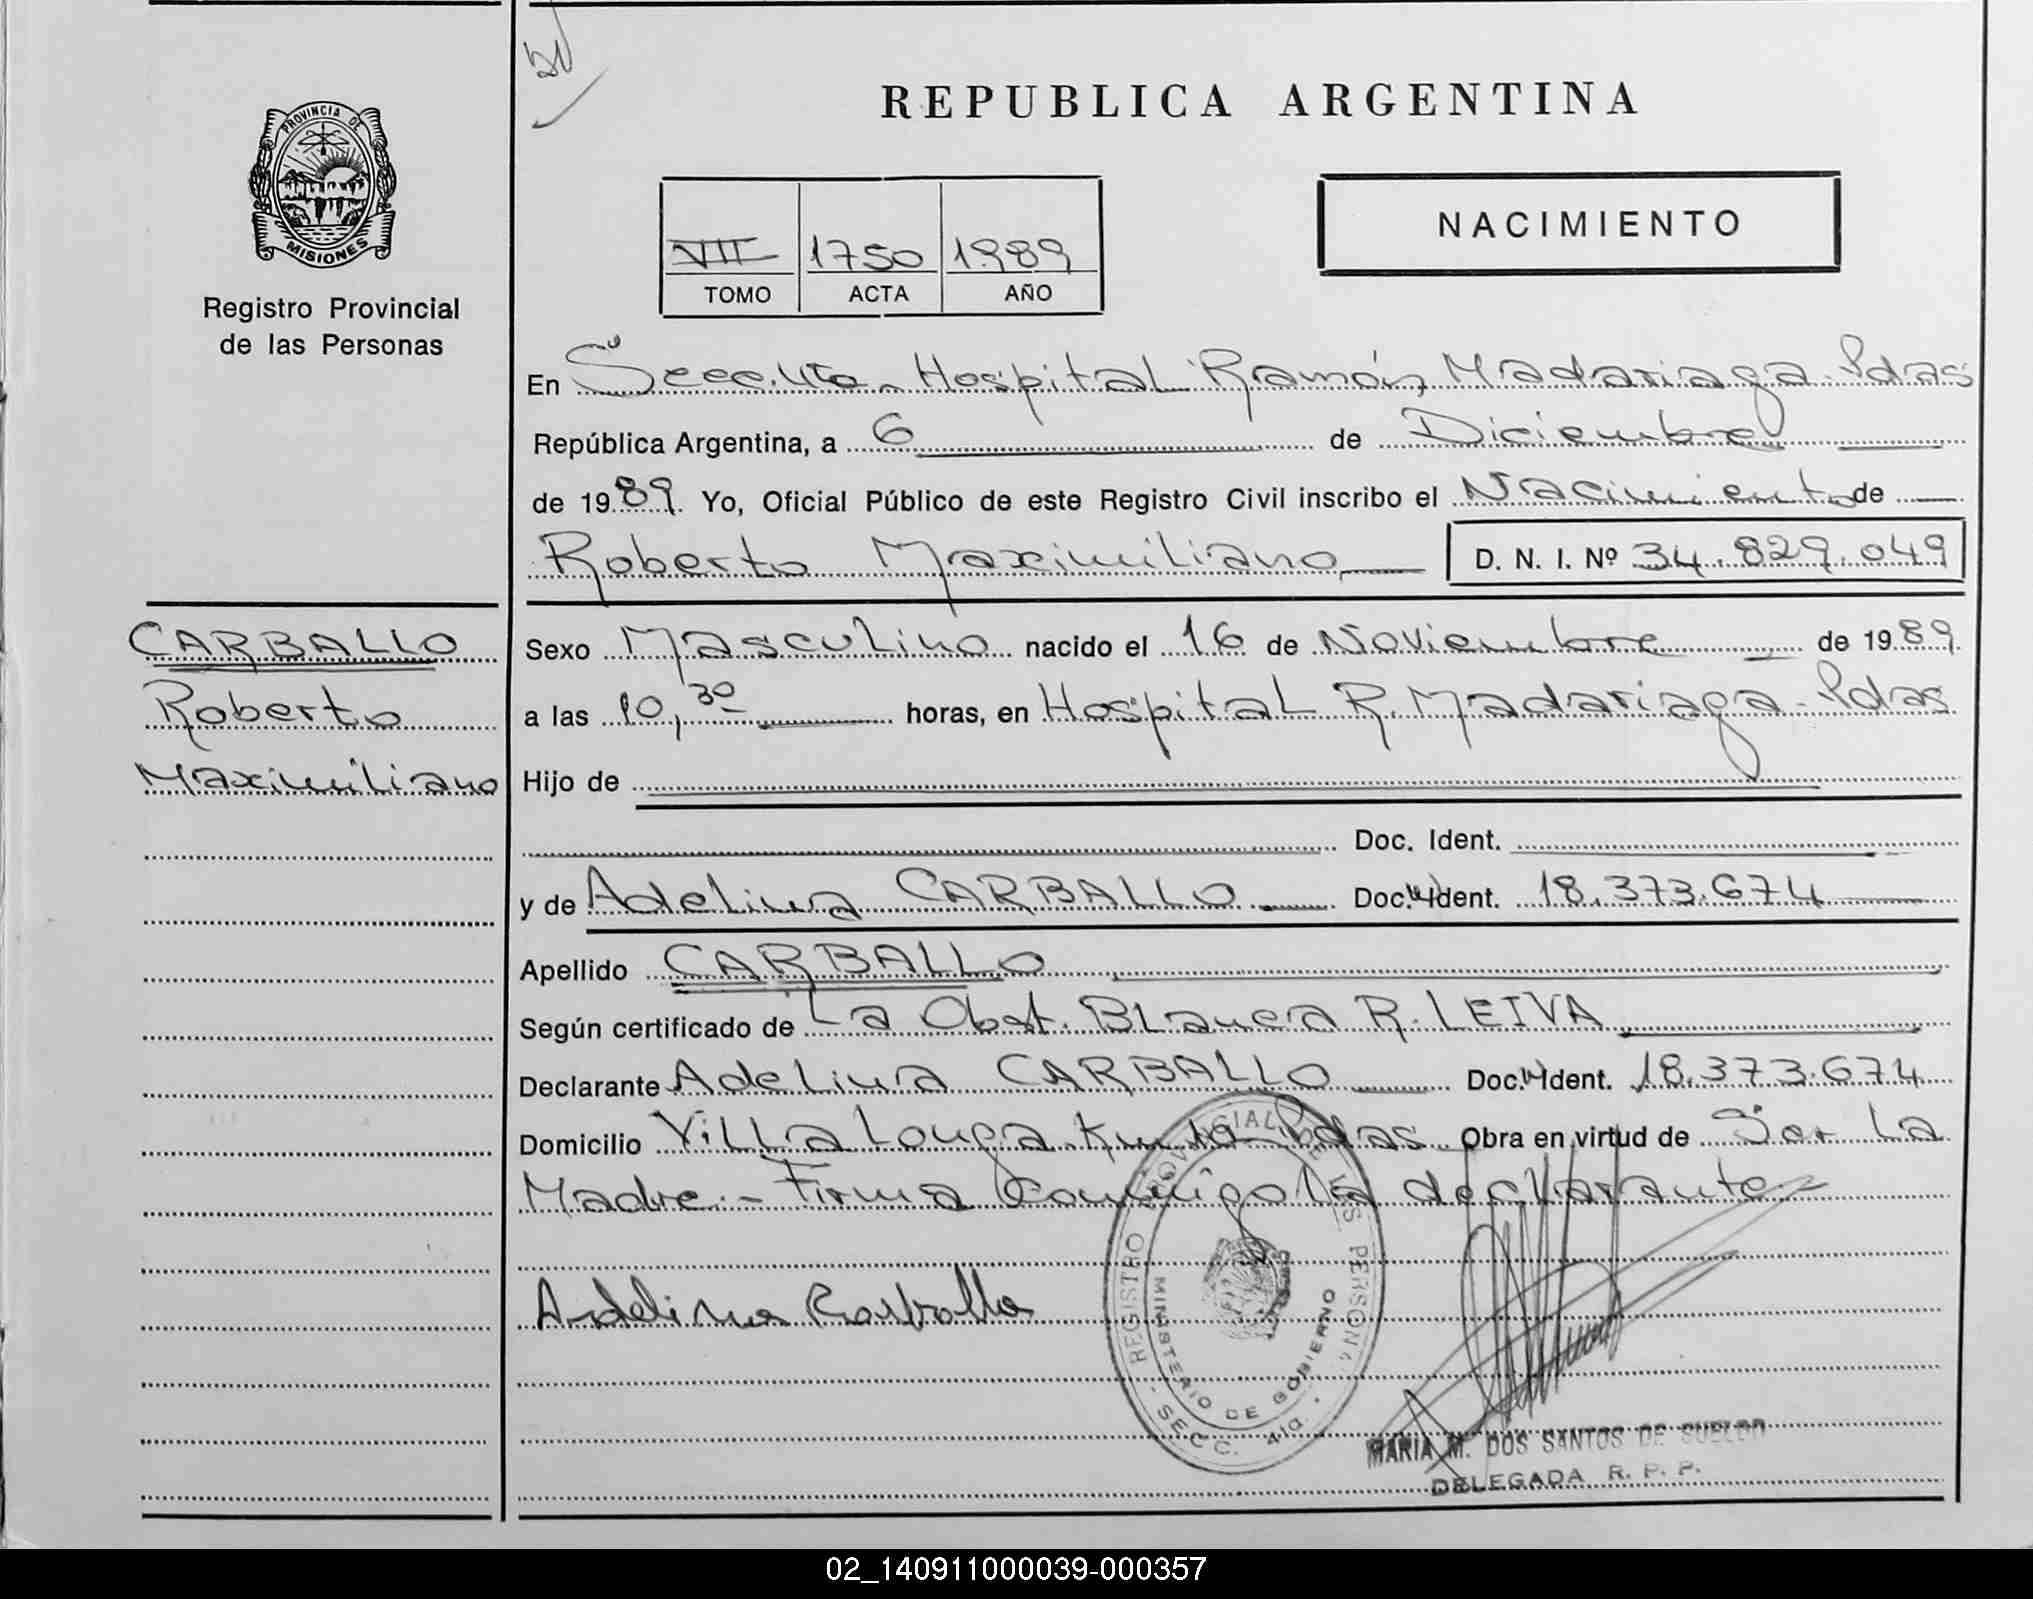 REPUBLICA ARGENTINA
PROVINCIA DE
MISIONES
Registro Provincial
de las Personas
VII 1750 1989
TOMO ACTA AÑO
NACIMIENTO
En Secc. 4ta. Hospital Ramón Madariaga. Pdas
República Argentina, a 6 de Diciembre
de 1989. Yo, Oficial Público de este Registro Civil inscribo el Nacimiento de
Roberto Maximiliano D. N. I. Nº 34.829.049
CARBALLO
Roberto
Maximiliano
Sexo Masculino nacido el 16 de Noviembre de 1989.
a las 10,30 horas, en Hospital R. Madariaga - Pdas
Hijo de
Doc. Ident.
y de Adelina CARBALLO Doc. Ident. 18.373.674
Apellido CARBALLO
Según certificado de La Obst. Blanca R. LEIVA
Declarante Adelina CARBALLO Doc. Ident. 18.373.674
Domicilio Villa Longa Pdas Obra en virtud de Ser La
Madre.- Firma Conmigo la declarante
Adelina Carballo
REGISTRO PROVINCIAL DE LAS PERSONAS
MINISTERIO DE GOBIERNO
SECC. 4ta.
MARIA M. DOS SANTOS DE SUELDO
DELEGADA R. P. P.
02_140911000039-000357